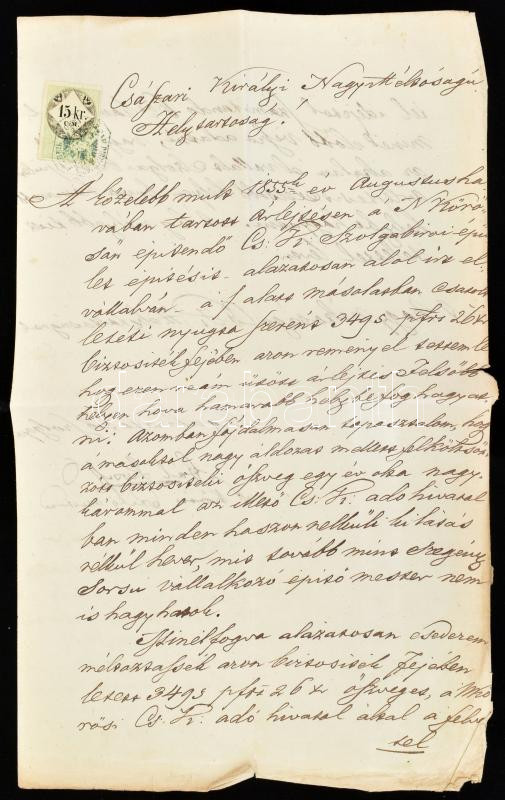 15 kr.
C.M.
Császári Királyi Nagyméltóságú
Helytartóság!
A közelebb mult 1855ik év Augustus ha
vában tartott árlejtésen a N Körö
sön épitendő Cs. K. Szolgabirói épü
let épitésit alázatosan alól irt el
vállalván a /. alatt másolatban csatolt
letéti nyugta szerént 3495 pfrt 26 xr
biztositék fejében azon reményel tettem le
hogy ezen reám ütött árlejtés Felsőbb
helyen hova hamarabb helybe fog hagyat
ni; azomban fájdalmasan tapasztalom, hogy
a másoktól nagy áldozat mellett felkölcsö
zött biztositéki öszveg egy év óta nagy
károммal az illető Cs. K. adó hivatal
ban minden haszon nélküli kilátás
nélkül hever, mit tovább mint szegény
Sorsu vállalkozó épitő mester nem
is hagyhatok.
Minélfogva alázatosan esedezem
méltóztassék azon biztositék fejében
letett 3495 pfrt 26 xr öszveget, a
rösi Cs. K. adó hivatal által a
tel